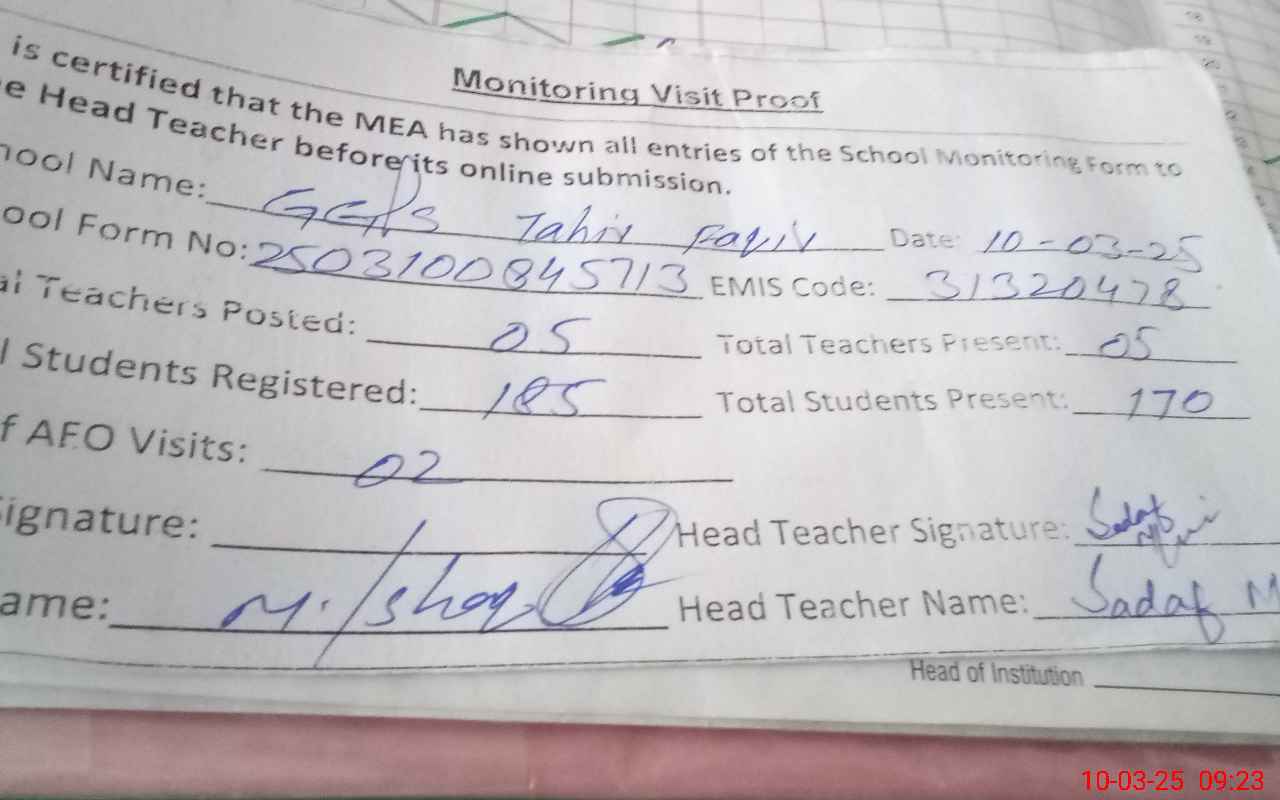 Monitoring Visit Proof
is certified that the MEA has shown all entries of the School Monitoring Form to
e Head Teacher before its online submission.
hool Name: GGPS Tahir Faqir Date: 10-03-25
ool Form No: 25031000845713 EMIS Code: 31320478
al Teachers Posted: 05 Total Teachers Present: 05
l Students Registered: 185 Total Students Present: 170
f AEO Visits: 02
Signature: Head Teacher Signature: Sadaf
ame: M. Ishaq Head Teacher Name: Sadaf M
Head of Institution
10-03-25 09:23